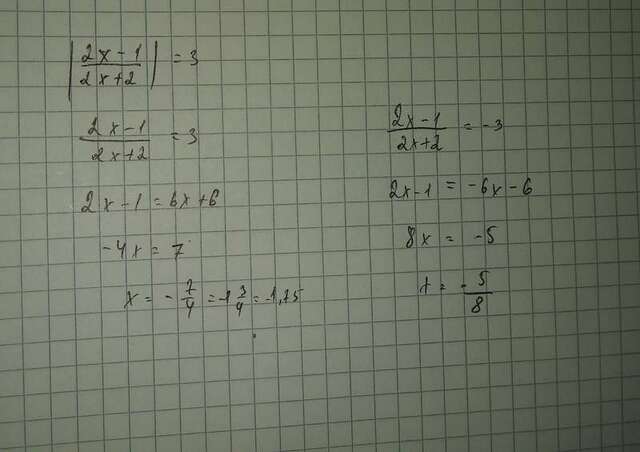 |(2x-1)/(2x+2)| = 3
(2x-1)/(2x+2) = 3
2x-1 = 6x+6
-4x = 7
x = -7/4 = -1 3/4 = -1,75
(2x-1)/(2x+2) = -3
2x-1 = -6x-6
8x = -5
x = -5/8